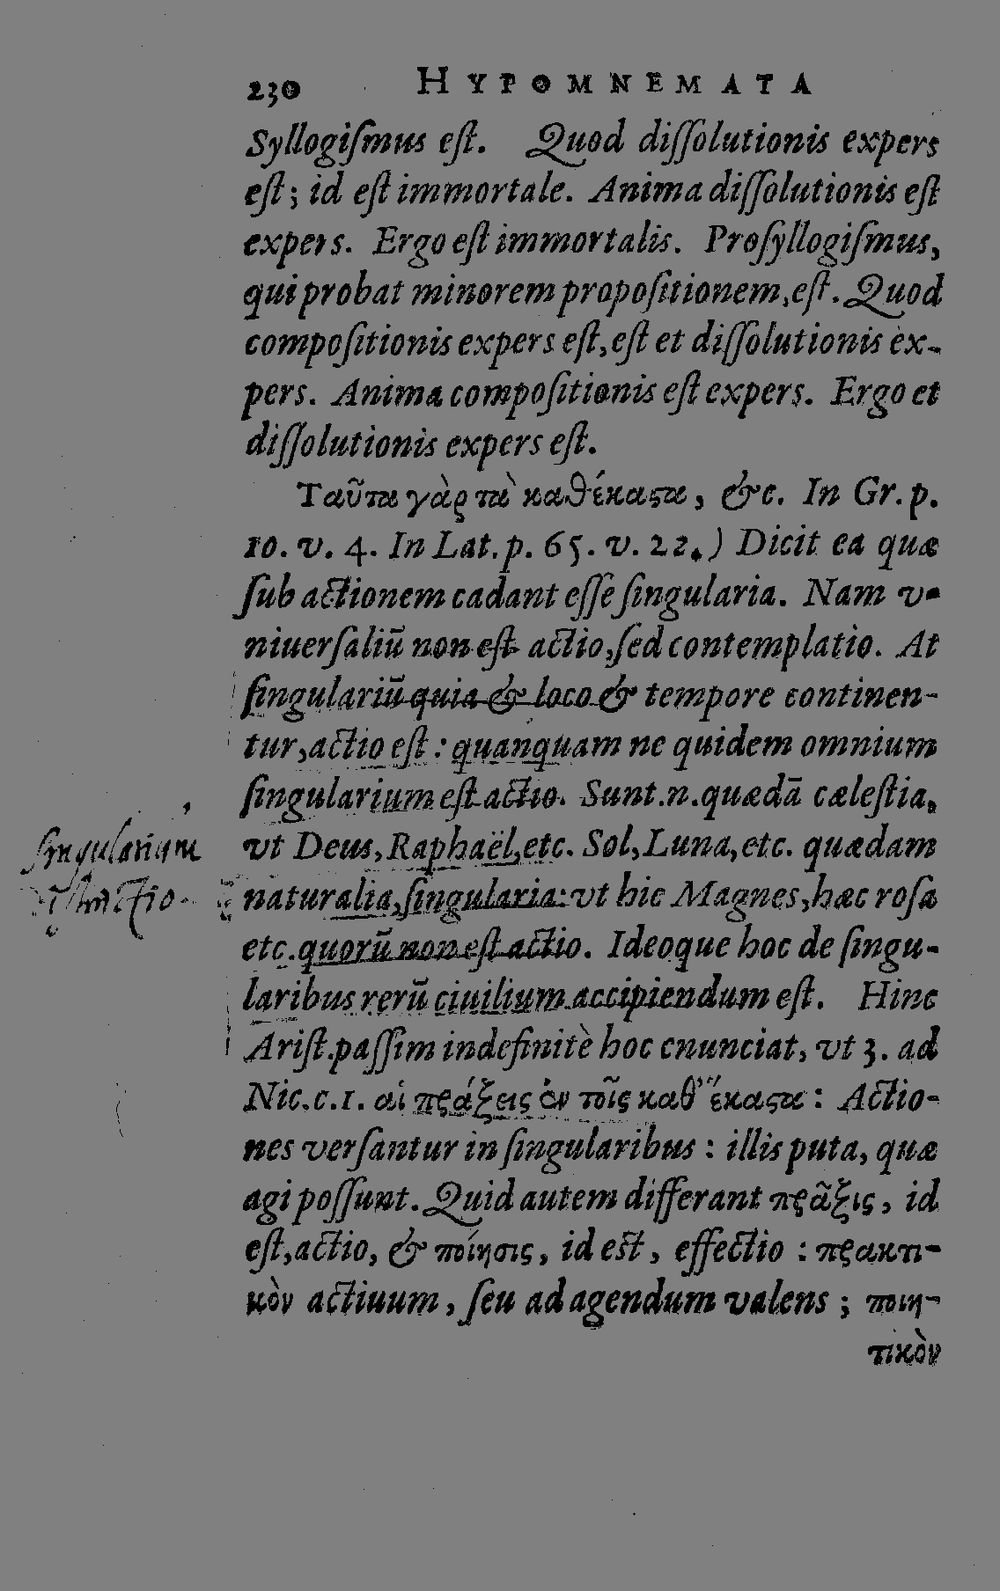 230 HYPOMNEMATA
Syllogiſmus eſt. Quod diſſolutionis expers
eſt; id eſt immortale. Anima diſſolutionis eſt
expers. Ergo eſt immortalis. Proſyllogiſmus,
qui probat minorem propoſitionem, eſt. Quod
compoſitionis expers eſt, eſt et diſſolutionis ex-
pers. Anima compoſitionis eſt expers. Ergo et
diſſolutionis expers eſt.
Ταῦτα γὰρ τὰ καθέκαστα, &c. In Gr. p.
10. v. 4. In Lat. p. 65. v. 22.) Dicit ea quæ
ſub actionem cadant eſſe ſingularia. Nam v-
niuerſaliū non eſt actio, ſed contemplatio. At
ſingulariū quia & loco & tempore continen-
tur, actio eſt: quanquam ne quidem omnium
ſingularium eſt actio. Sunt .n. quædā cæleſtia,
vt Deus, Raphaël, etc. Sol, Luna, etc. quædam
naturalia, ſingularia: vt hic Magnes, hæc roſa
etc. quorū non eſt actio. Ideoque hoc de ſingu-
laribus rerū ciuilium accipiendum eſt. Hinc
Ariſt. paſſim indefinitè hoc enunciat, vt 3. ad
Nic. c. 1. αἱ πράξεις ἐν τοῖς καθ' ἕκαστα: Actio-
nes verſantur in ſingularibus: illis puta, quæ
agi poſſunt. Quid autem differant πρᾶξις, id
eſt, actio, & ποίησις, id eſt, effectio: πρακτι-
κὸν actiuum, ſeu ad agendum valens; ποιη-
τικὸν
ſingularium
actio